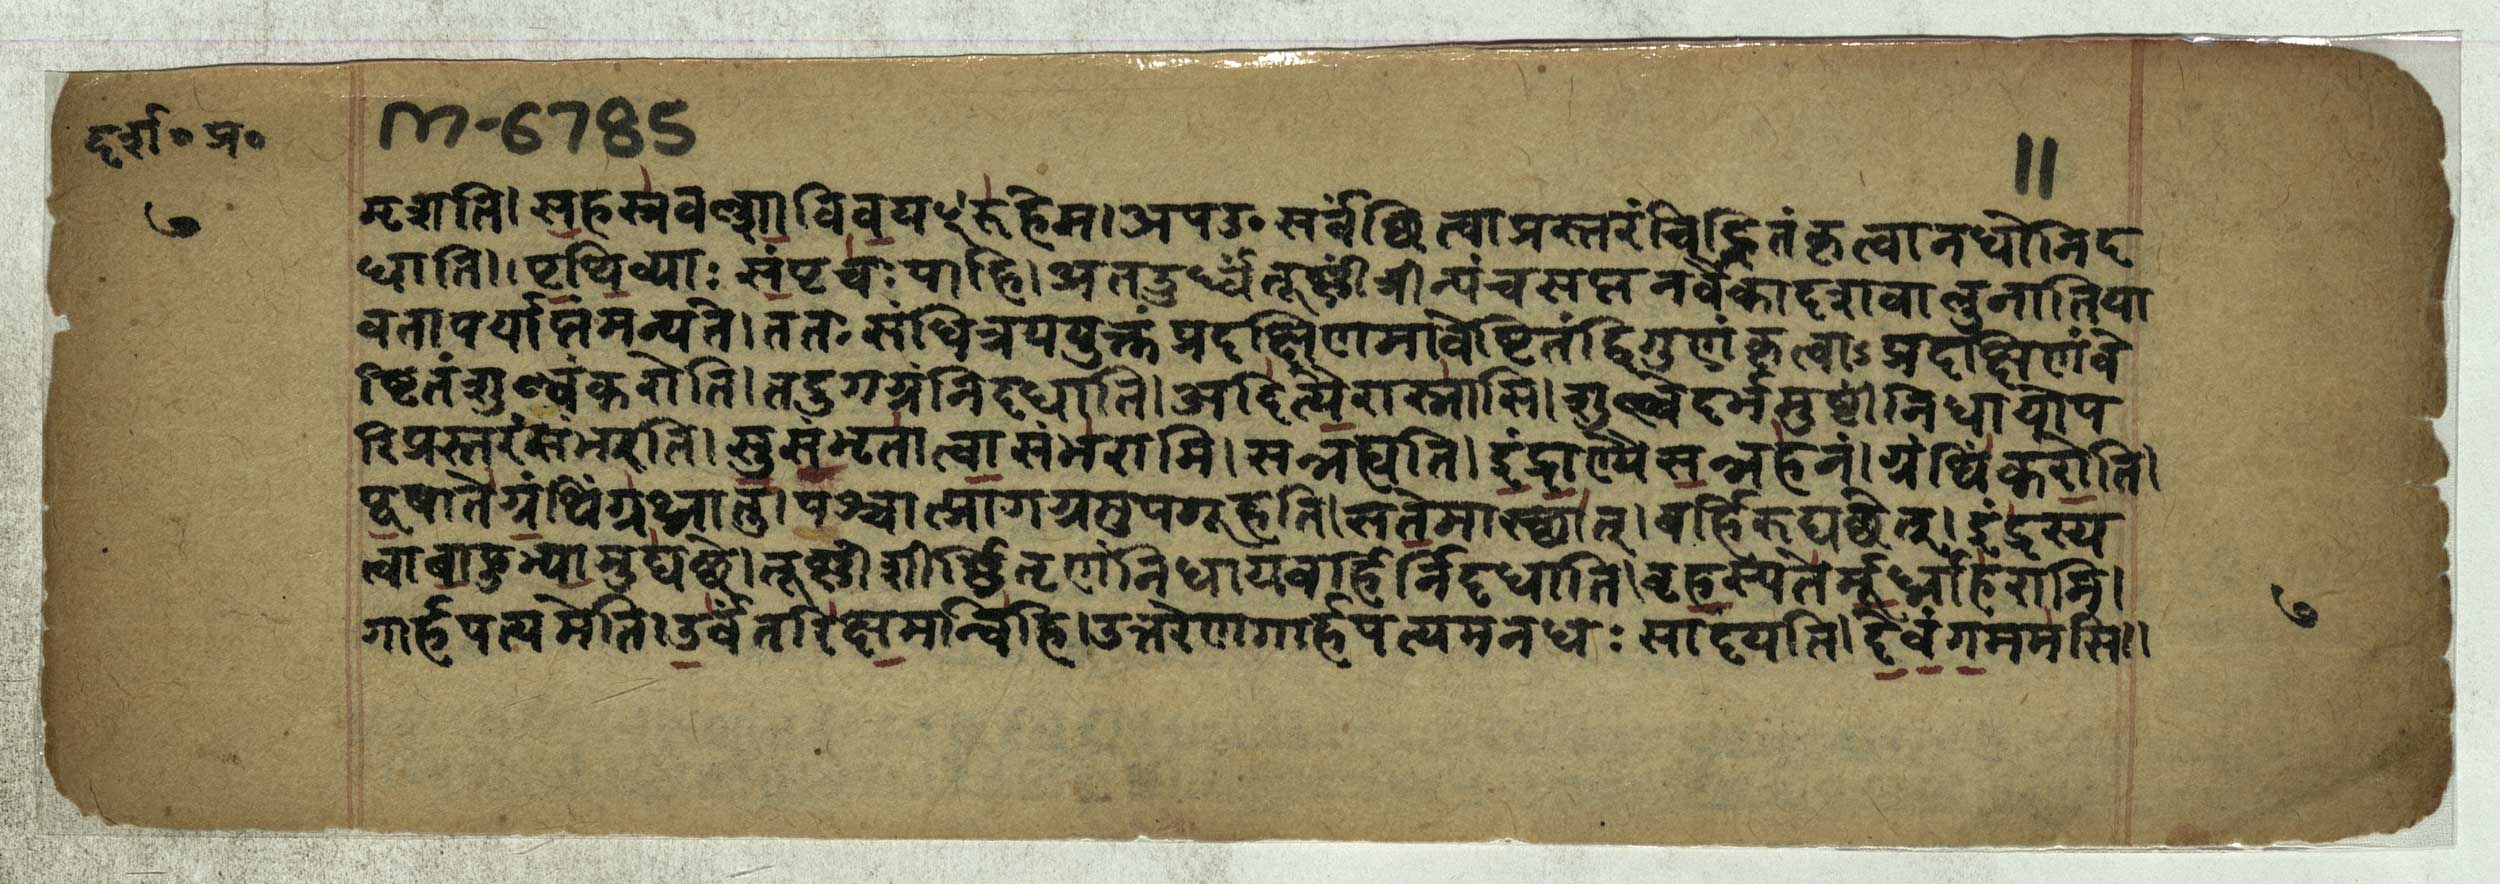 दर्श॰ प्र॰
M-6785
॥
७
मृशति। सहस्रवल्शा विवय ᳪ रुहेम। अप उ॰ सर्वंछित्वा प्रस्तरं चिह्नितं कृत्वानधोनिद
धाति।। पृथिव्याः संपृचः पाहि। अत ऊर्ध्वं तूष्णीं त्रीन्पंचसप्तनवैकादशवालुनातिया
वतापर्याप्तंमन्यते। ततः संधित्रययुक्तं प्रदक्षिणमावेष्टितंद्विगुणंकृत्वाऽ प्रदक्षिणंवे
ष्टितंशुल्बंकरोति। तदुगग्रंनिदधाति। अदित्यैरास्नासि। शुल्बेदर्भमुष्टीं निधायोप
रिप्रस्तरंसंभरति। सुसंभृतात्वासंभरामि। सन्नह्यति। इंद्राण्यैसन्नहनं। ग्रंथिं करोति।
पूषातेग्रंथिंग्रथ्नातु। पश्चात्प्रागग्रमुपगूहति। सतेमास्थात्। बर्हिरुद्यच्छेत्। इंद्रस्य
त्वाबाहुभ्यामुद्यच्छे। तूष्णीं शीर्ष्णितृणंनिधायबर्हिर्निदधाति। बृहस्पतेर्मूर्ध्नाहरामि।
गार्हपत्यमेति। उर्वंतरिक्षमन्विहि। उत्तरेणगार्हपत्यमनधः सादयति। देवंगममसि।।
७